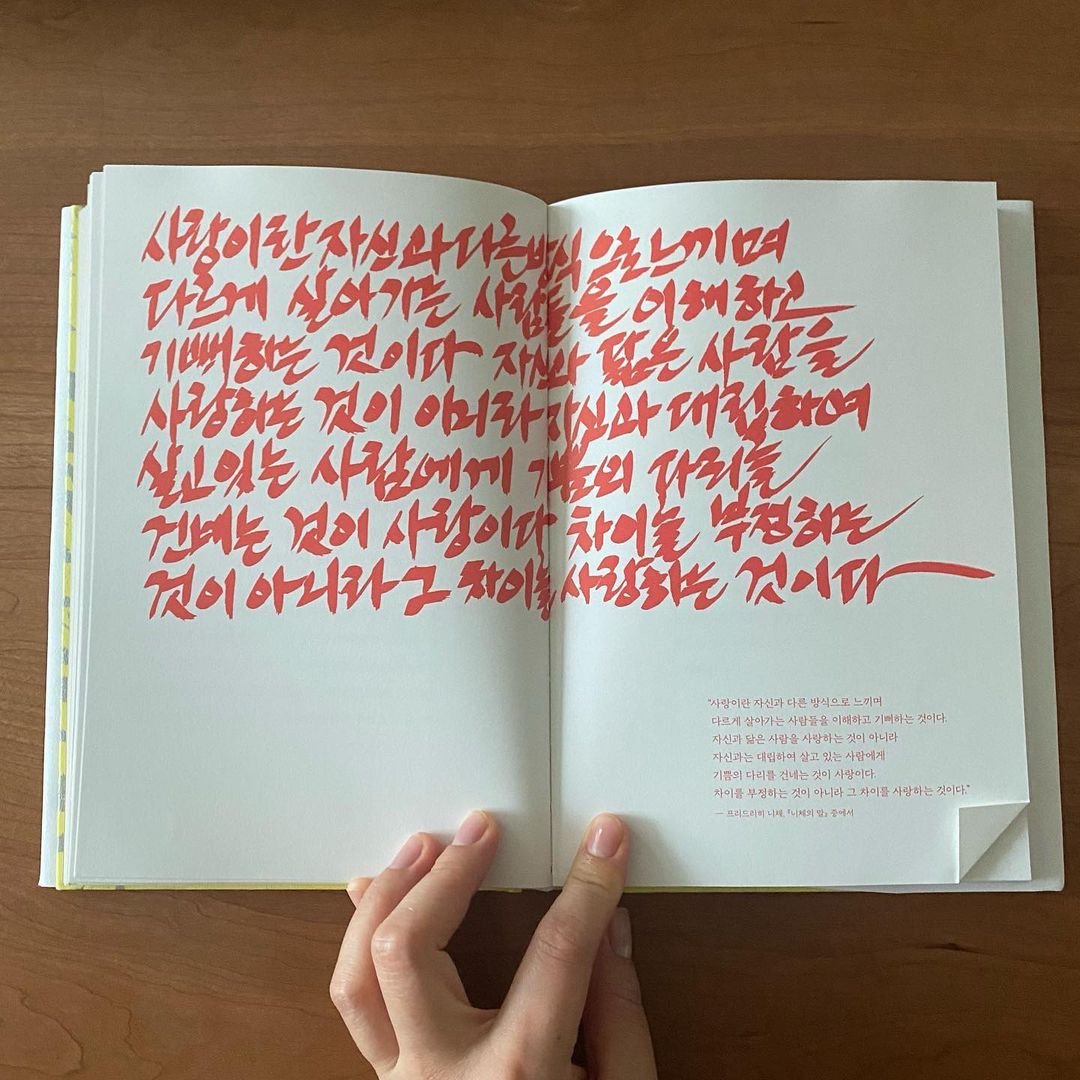 사랑이란 자신과 다른 방식으로 느끼며
다르게 살아가는 사람들을 이해하고
기뻐하는 것이다 자신과 닮은 사람을
사랑하는 것이 아니라 자신과 대립하여
살고있는 사람에게 기쁨의 다리를
건네는 것이 사랑이다 차이를 부정하는
것이 아니라 그 차이를 사랑하는 것이다
“사랑이란 자신과 다른 방식으로 느끼며
다르게 살아가는 사람들을 이해하고 기뻐하는 것이다.
자신과 닮은 사람을 사랑하는 것이 아니라
자신과는 대립하여 살고 있는 사람에게
기쁨의 다리를 건네는 것이 사랑이다.
차이를 부정하는 것이 아니라 그 차이를 사랑하는 것이다.”
— 프리드리히 니체, 『니체의 말』 중에서